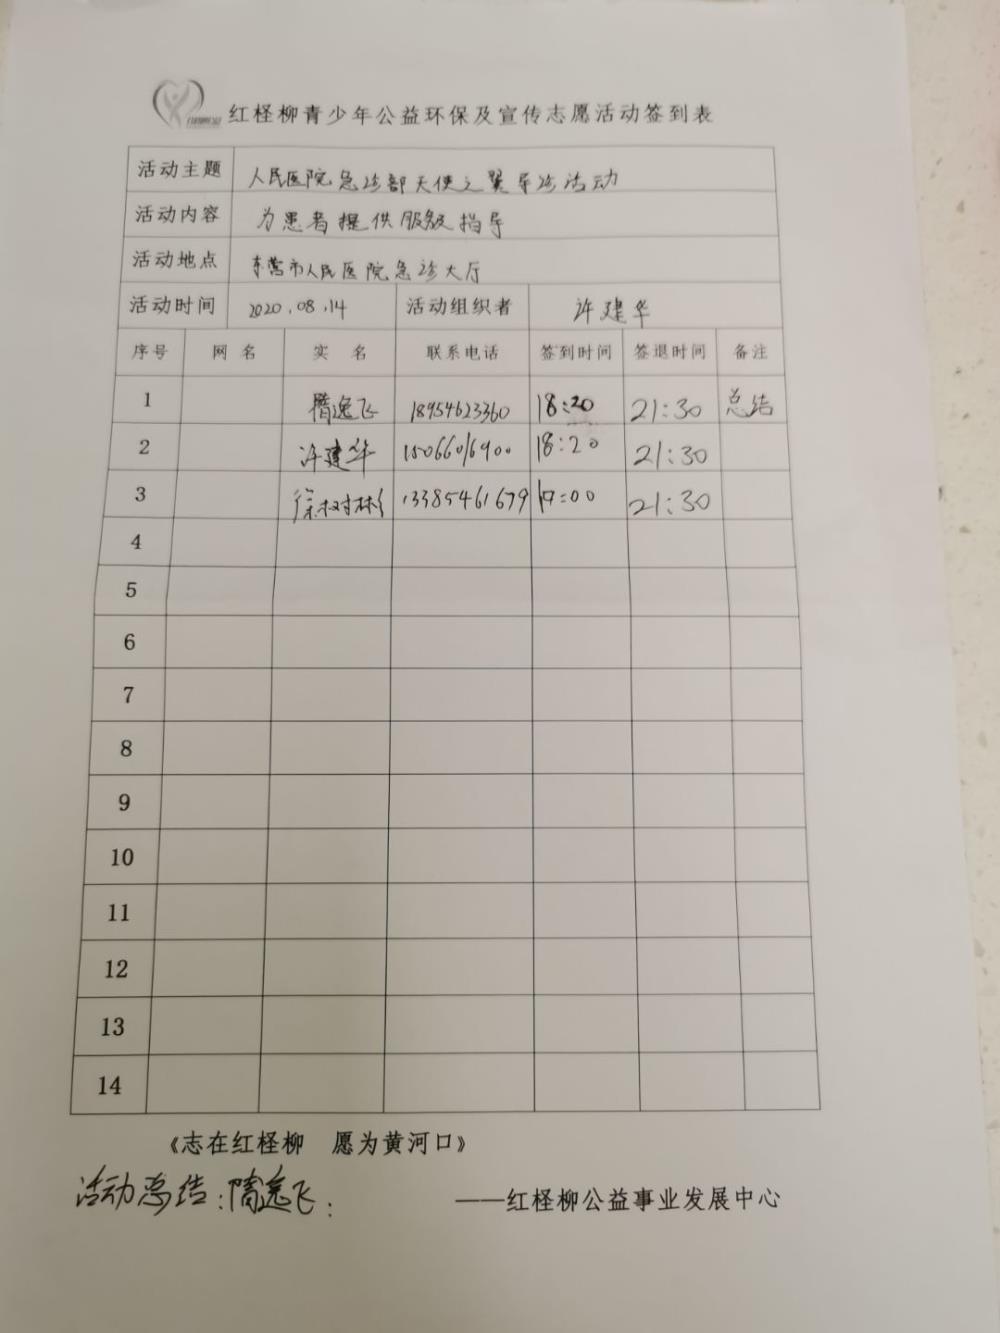 红柽柳青少年公益环保及宣传志愿活动签到表
活动主题 人民医院急诊部天使之翼导诊活动
活动内容 为患者提供服务指导
活动地点 东营市人民医院急诊大厅
活动时间 2020.08.14 活动组织者 许建华
序号 网名 实名 联系电话 签到时间 签退时间 备注
1 隋逸飞 18954623360 18:20 21:30 总结
2 许建华 15066016900 18:20 21:30
3 徐树林 13385461679 17:00 21:30
4
5
6
7
8
9
10
11
12
13
14
《志在红柽柳 愿为黄河口》
活动总结:隋逸飞:
——红柽柳公益事业发展中心